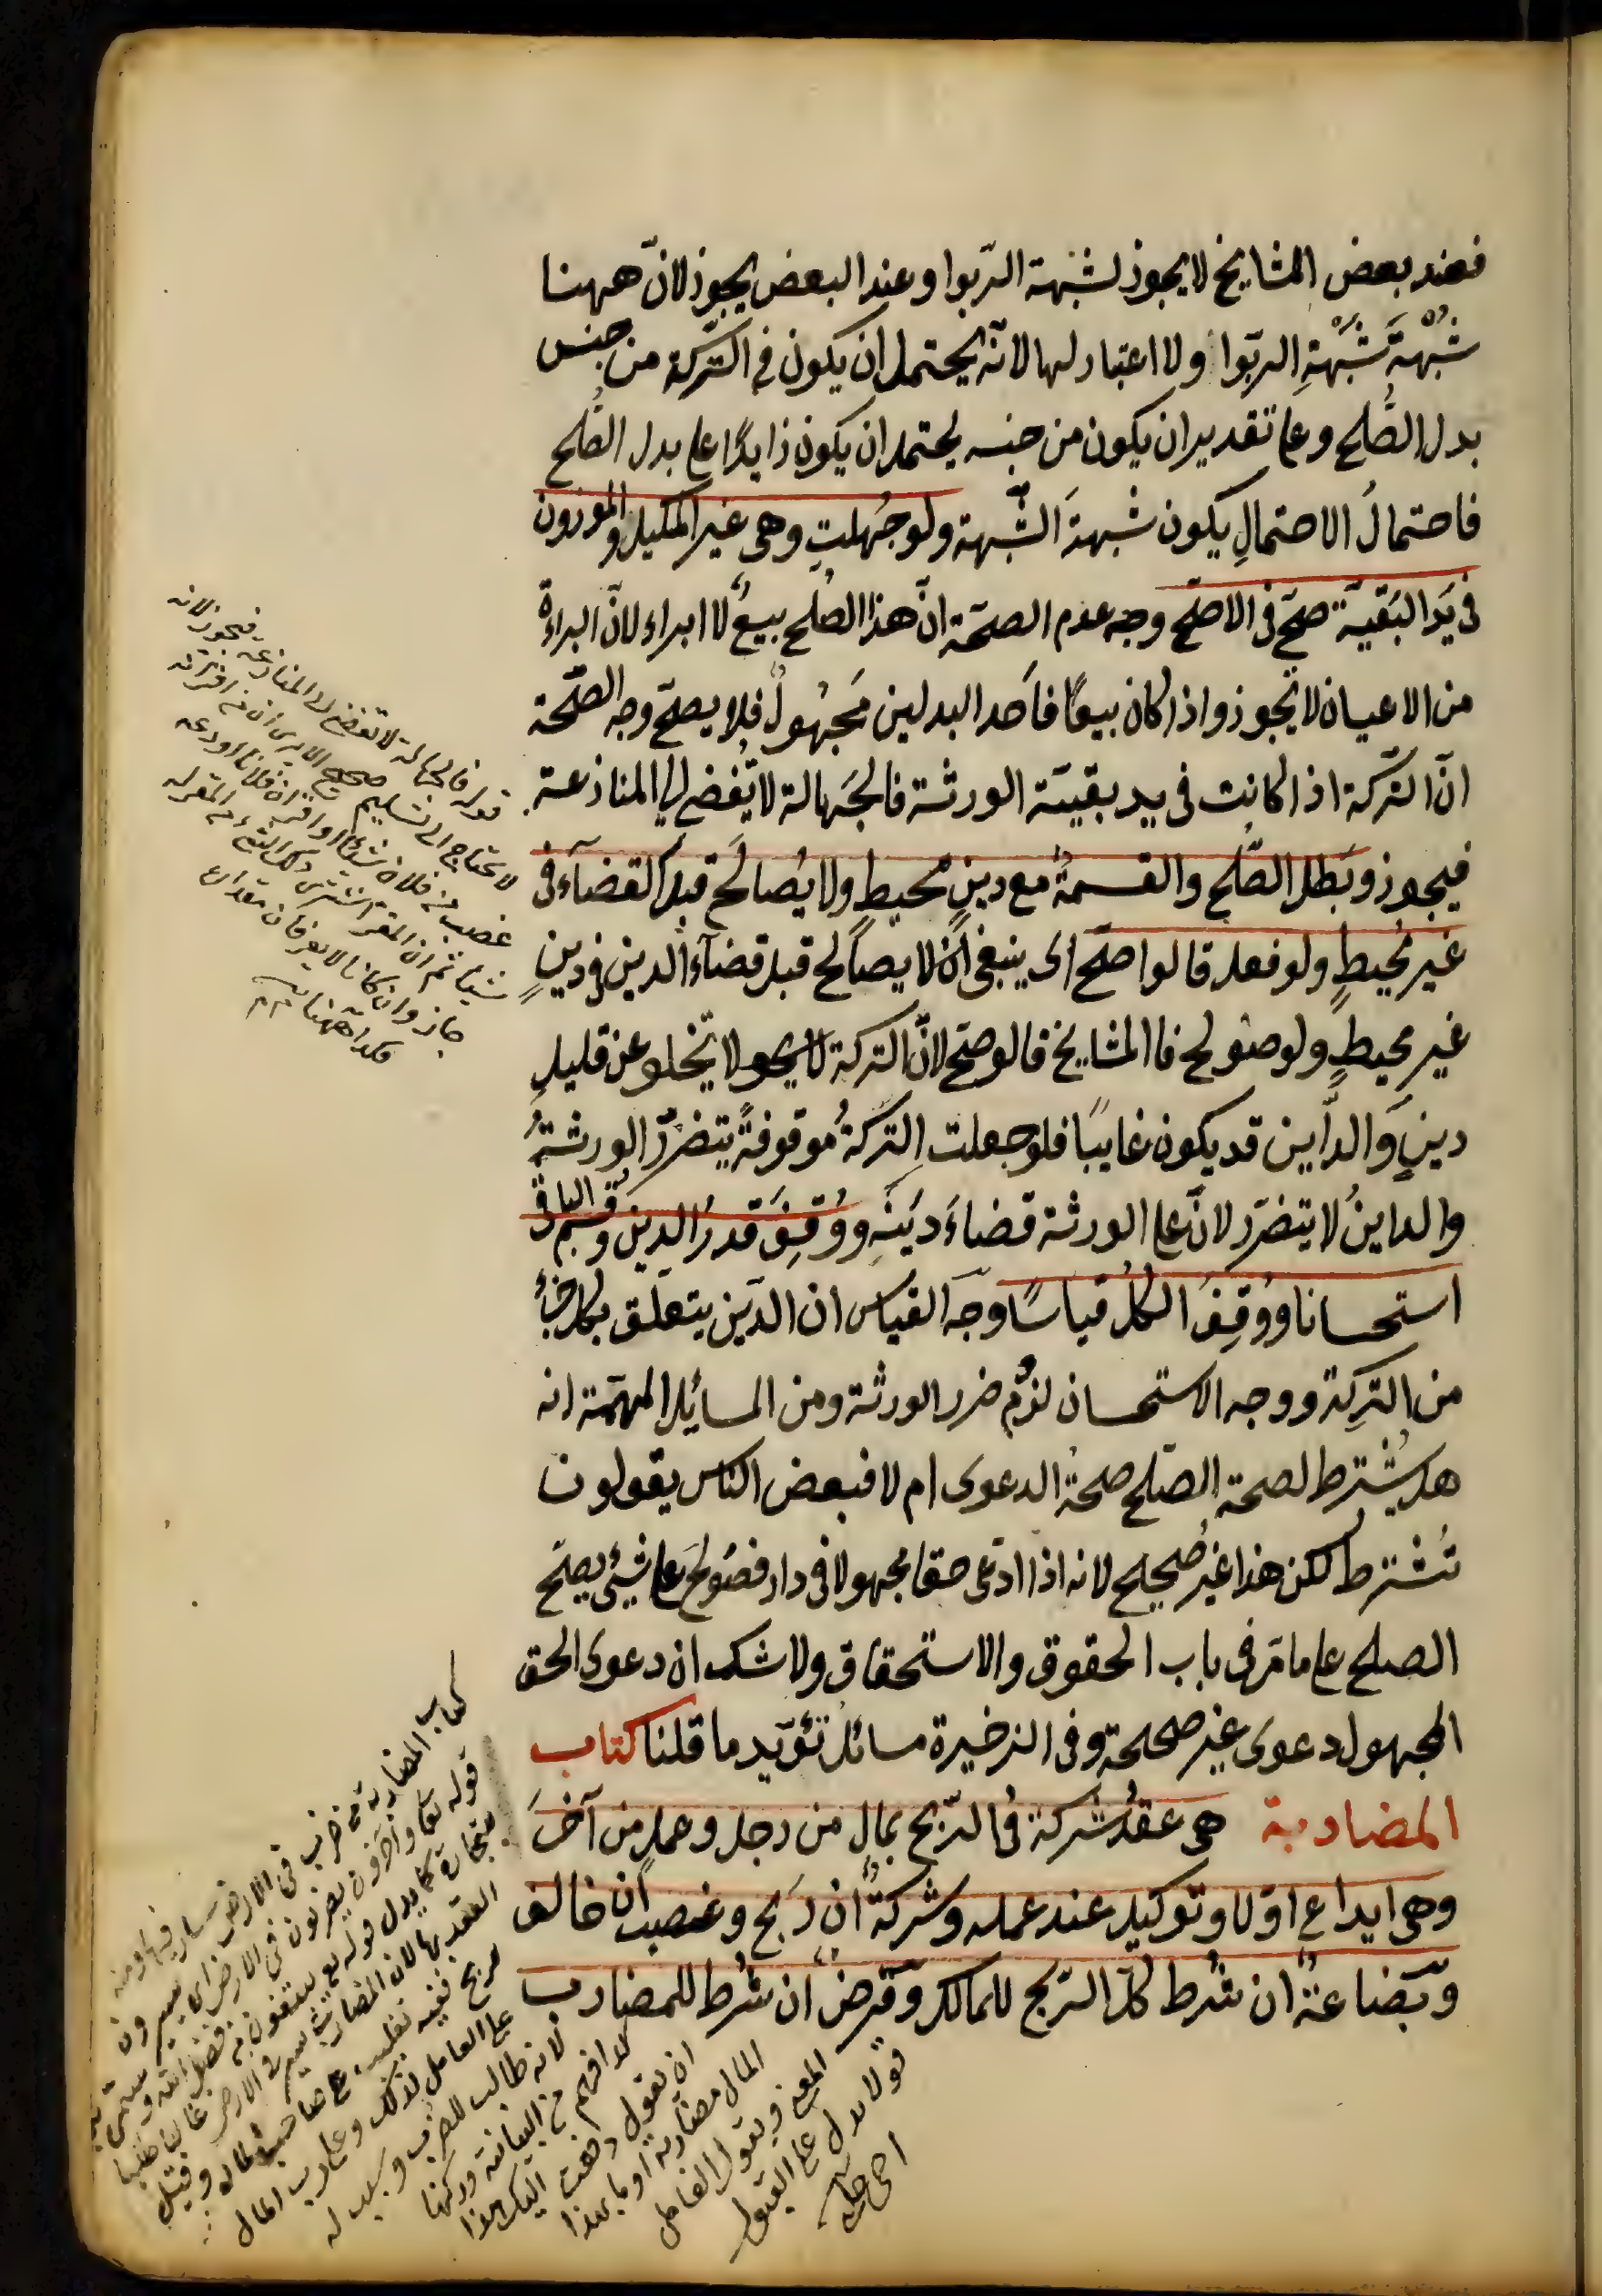 فعند بعض المشايخ لا يجوز لشبهة الربوا وعند البعض يجوز لانّ ههنا
شُبْهةَ شُبْهَةِ الربّوا ولا اعتبار لها لانّه يحتمل ان يكون في التّركة من جنس
بدل الصُّلح وعلى تقدير ان يكون من جنسه يحتمل ان يكون زايدًا على بدل الصُّلح
فاحتمالُ الاحتمالِ يكون شبهةَ الشّبهة ولو جُهلتِ وهى غير المكيل والموزون
فى يَدِ البَقيّة صحّ فى الاصحّ وجه عدم الصحّة انّ هذا الصُلح بيعٌ لا ابراء لانّ البراءة
من الاعيان لا تجوز واذا كان بيعًا فاَحد البدلين مَجهُولٌ فلا يصحّ وجه الصّحة
انّ التّركة اذا كانت فى يد بقيّة الورثة فالجَهالة لا تُفضى الى المنازعة
فيجوز وبَطل الصُّلح والقسمةُ مع دينٍ مُحيطٍ ولا يُصالَح قبل القضآء فى
غير مُحيطٍ ولو فعل قالوا صحّ اى ينبغى ان لا يصالح قبل قضآء الدين فى دينٍ
غير محيطٍ ولو صُولح فالمشايخ قالو صحّ لانّ التركة لا تخلو عن قليلِ
دينٍ والدَّاين قد يكون غايبًا فلو جعلت التركةُ موقوفةً يتضرّر الورثةُ
والداينُ لا يتضرّر لانّ على الورثة قضاءَ دَينَهِ ووُقِفَ قدرُ الدين وقُسِم الباقى
استحسانا ووُقِفَ الكلُ قياسًا وجَه القياس ان الدَين يتعلّق بكل جزءٍ
من التركِة ووجه الاستحسان لزُوم ضرر الورثة ومن المسائل المهمّة انه
هل يُشترط لصحة الصّلح صحةُ الدعوى ام لا فبعض الناس يقولون
تُشترط لكن هذا غيُر صحيح لانه اذا ادعى حقا مجهولا فى دار فصُولحَ على شيئ يصحّ
الصلح على ما مَرّ فى باب الحقوق والاستحقاق ولا شك ان دعوى الحق
المجهول دعوى غير صحيحة وفى الذخيرة مسائلُ تُؤيّد ما قلنا كتاب
المضاربة هى عقدُ شركة فى الرّبح بمالٍ من رجل وعملٍ من آخرَ
وهى ايداع اوّلا وتوكيل عند عمله وشركةٌ ان رَبح وغصب ان خالف
وبَضاعةٌ ان شُرط كلُّ الرّبح للمالك وقَرضٌ ان شُرط للمضارب
قوله فالجهالة لا تفضى الى المنازعة فيجوز لانه
لا يحتاج الى تسليم صحيح الا يرى ان من اقر انه
غصب من فلان شيئا او اقر ان فلانا اودعه
شيئا ثم ان المقر اشترى ذلك الشئ من المقر له
جاز وان كانا لا يعرفان مقداره
فكذا ههنا
كتاب المضاربة من ضرب فى الارض سار فيها ومنه
قوله تعالى وآخرون يضربون فى الارض اى يسيرون